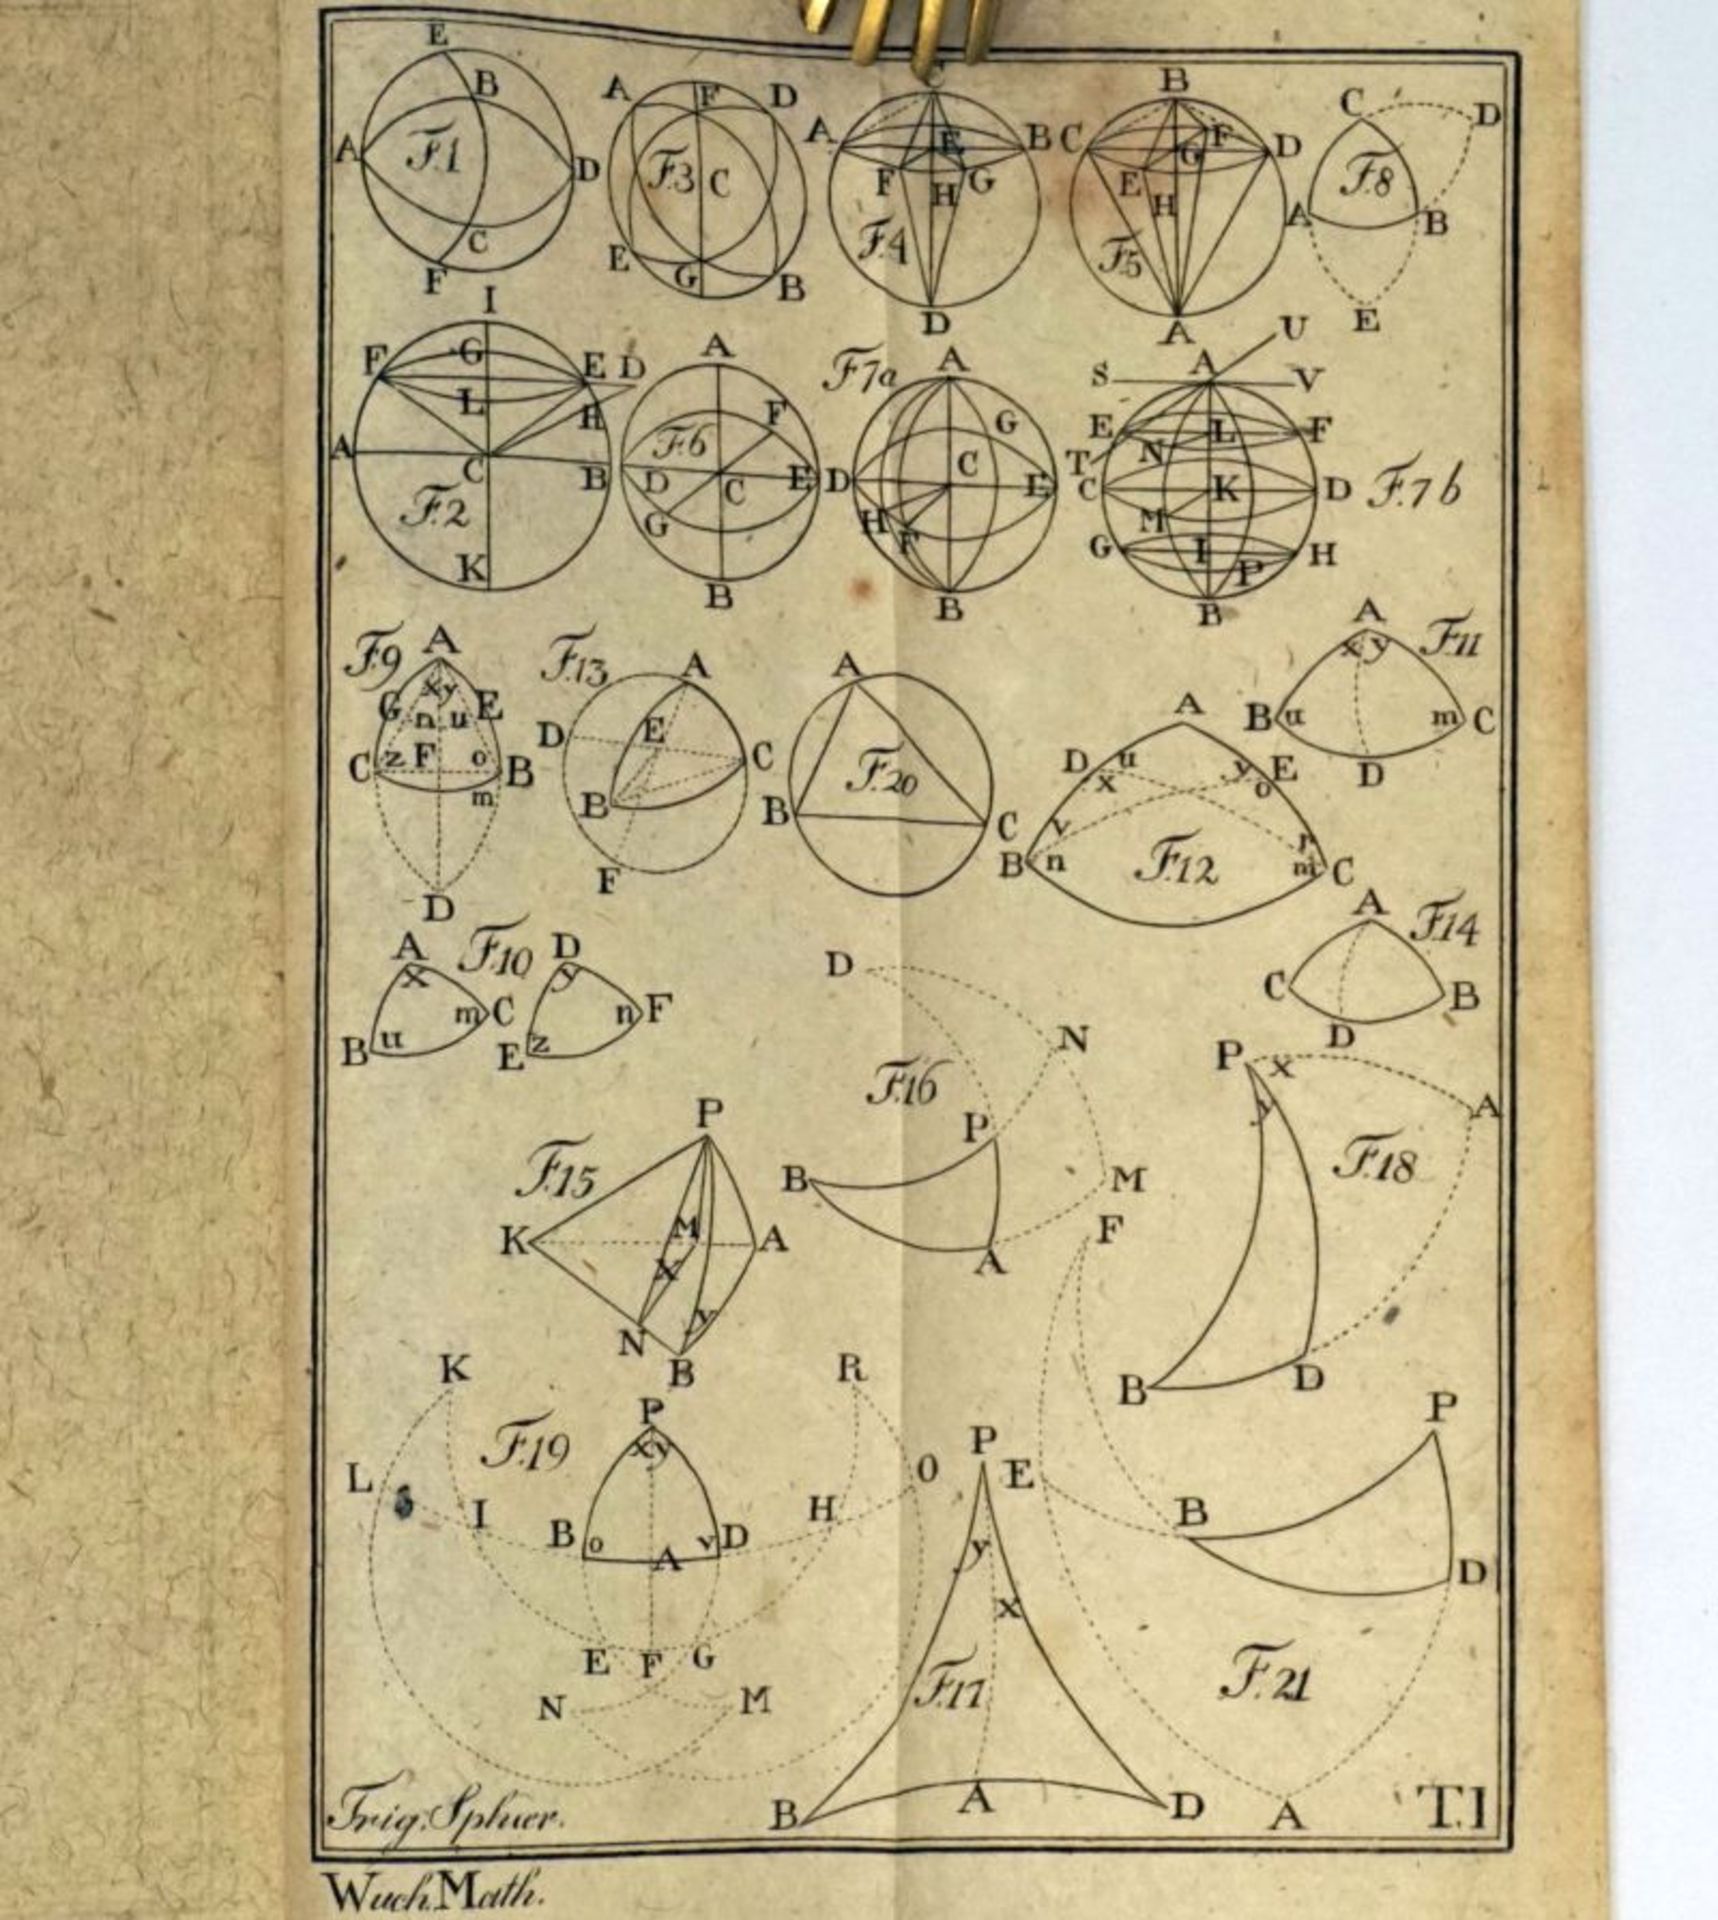 E
B
A F.1 D
C
F
A F D
F.3 C
E G B
C
A E B
F H G
F.4
D
B
C F D
G
E H
F.5
A
C D
F.8
A B
E
I
F G E D
L H
A C B
F.2
K
A
F
F.6
D C E
G
B
F.7a A
G
C
D E
H F
B
U
S A V
E L F
T N
C K D F.7b
M
G I H
P
B
F.9 A
x y
G n u E
C z F o B
m
D
F.13 A
D E C
B
F
A
F.20
B C
A
D u y E
x o
v r
B n F.12 m C
A F.11
x y
B u m C
D
A F.10 D
x y
m C n F
B u E z
A F.14
C B
D
D
N
F.16
P
B M
A
P x A
y
F.18
B D
P
F.15
K M A
x
y
N B
F
K R
P
F.19 x y
L O
I H
B o A v D
E F G
N M
P
y
x
F.17
B A D
P
E B
D
F.21
A
Trig. Sphaer. T.I
Wuch. Math.